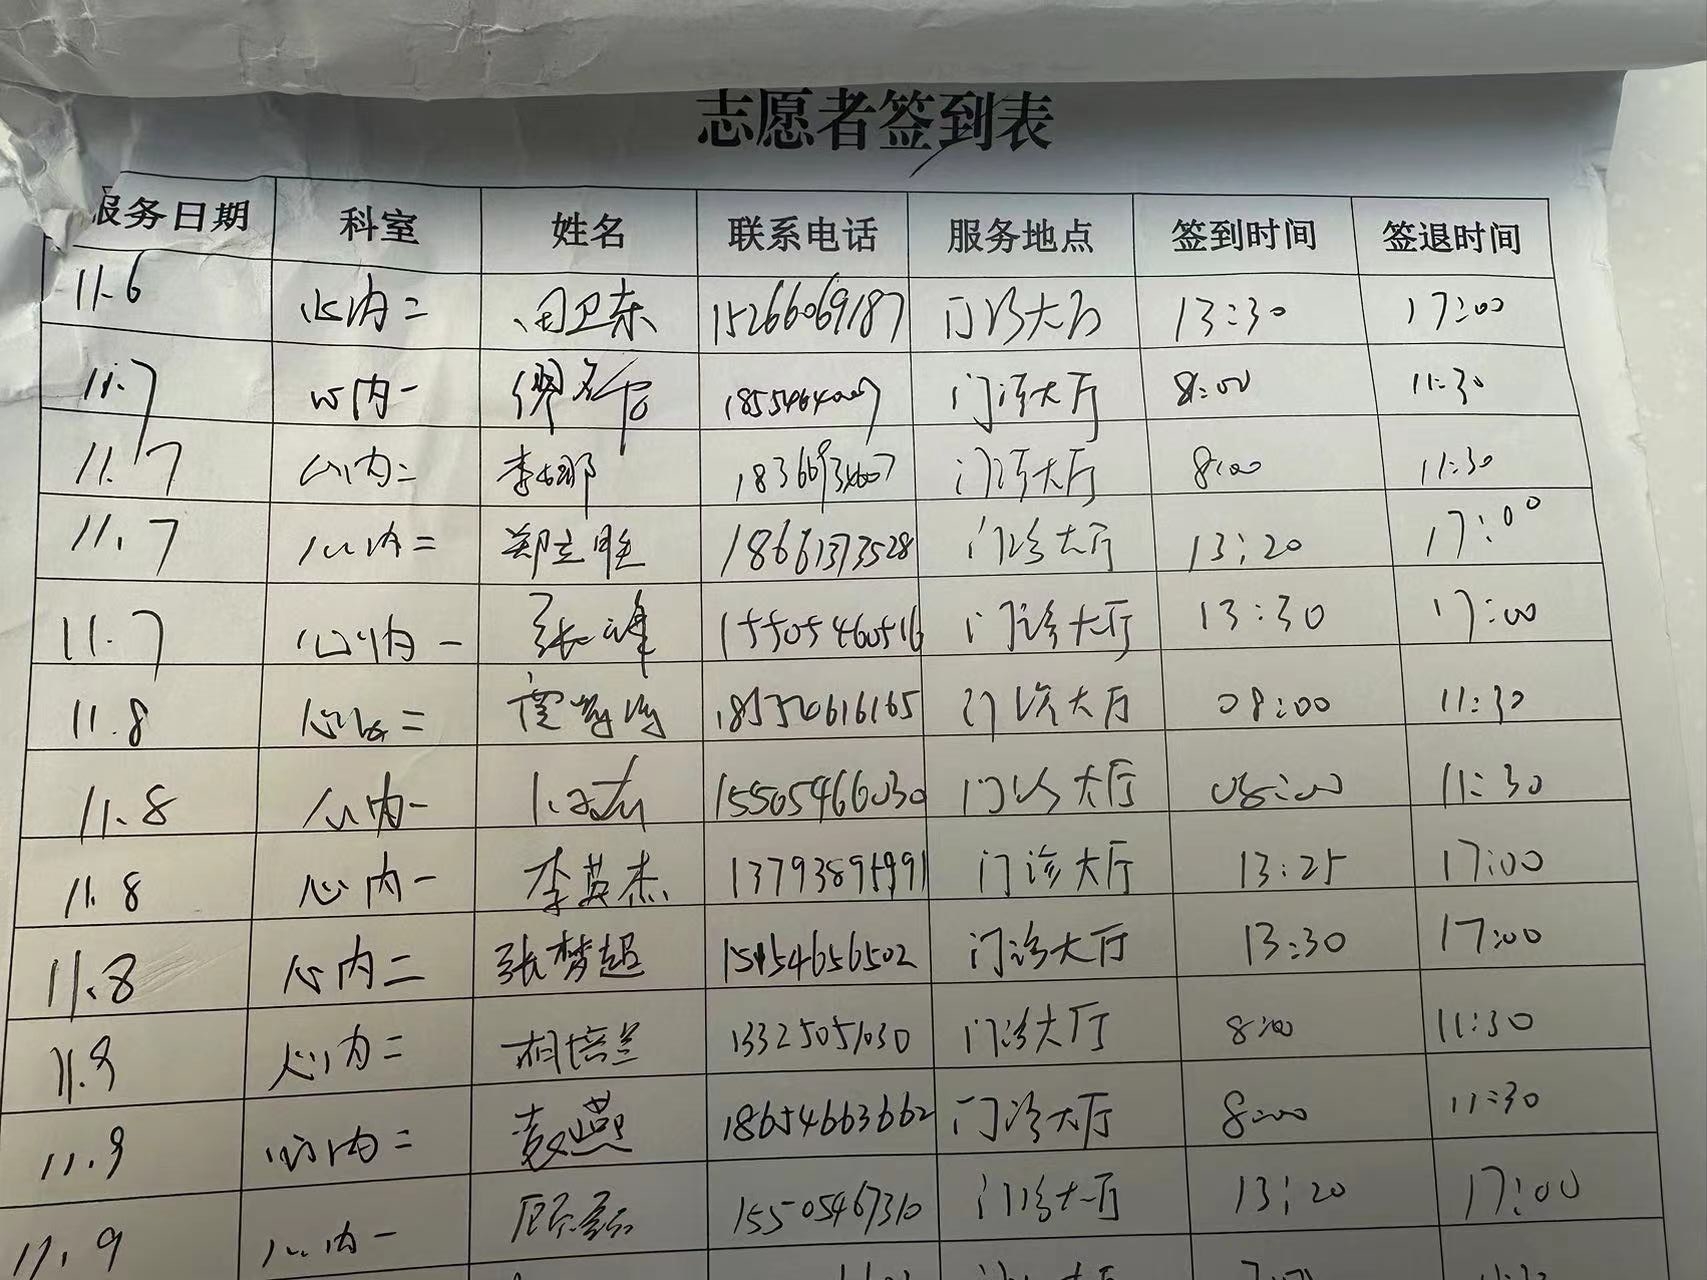 志愿者签到表
服务日期 科室 姓名 联系电话 服务地点 签到时间 签退时间
11.6 心内二 田卫东 15266069187 门诊大厅 13:30 17:00
11.7 心内一 门诊大厅 8:00 11:30
11.7 心内二 李娜 门诊大厅 8:00 11:30
11.7 心内二 郑立胜 18661373528 门诊大厅 13:20 17:00
11.7 心内一 张峰 15505460516 门诊大厅 13:30 17:00
11.8 心内二 门诊大厅 08:00 11:30
11.8 心内一 15505466030 门诊大厅 08:00 11:30
11.8 心内一 李英杰 13793895991 门诊大厅 13:25 17:00
11.8 心内二 张梦超 15154656502 门诊大厅 13:30 17:00
11.9 心内二 相培兰 13325051030 门诊大厅 8:00 11:30
11.9 心内二 袁燕 18654663662 门诊大厅 8:00 11:30
11.9 心内一 顾磊 15505467310 门诊大厅 13:20 17:00